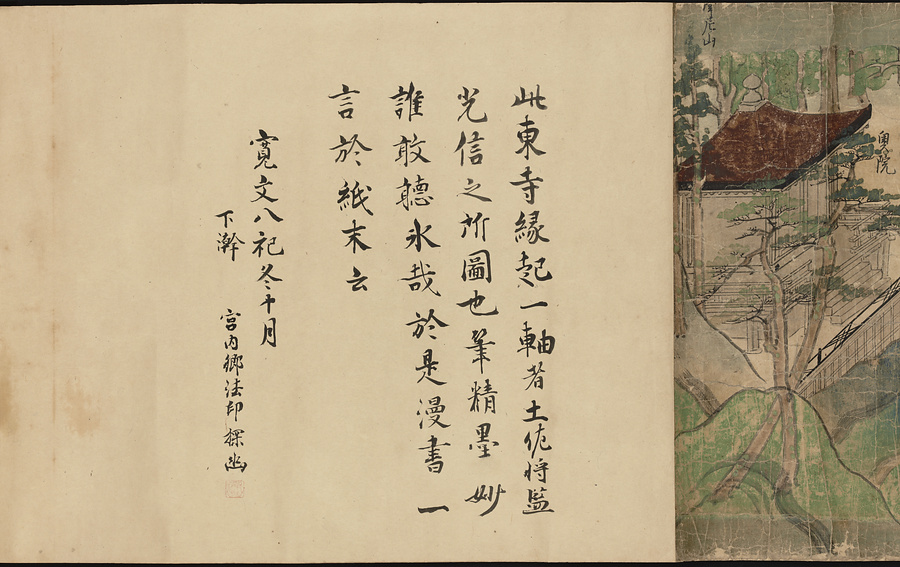 奥院
此東寺縁起一軸者土佐将監
光信之所圖也筆精墨妙
誰敢聴氷哉於是漫書一
言於紙末云
寛文八祀冬十月
下澣
宮内卿法印探幽